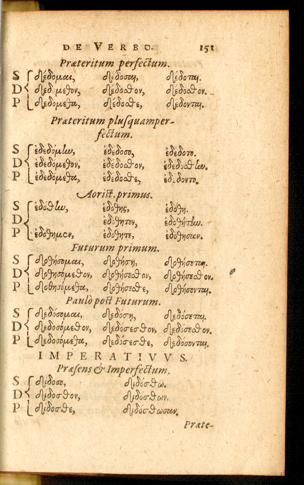 DE VERBO. 151
Præteritum perfectum.
S δέδομαι, δέδοσαι, δέδοται.
D δεδόμεθον, δέδοσθον, δέδοσθον.
P δεδόμεθα, δέδοσθε, δέδονται.
Præteritum plusquamper-
fectum.
S ἐδεδόμην, ἐδέδοσο, ἐδέδοτο.
D ἐδεδόμεθον, ἐδέδοσθον, ἐδεδόσθην.
P ἐδεδόμεθα, ἐδέδοσθε, ἐδέδοντο.
Aorist. primus.
S ἐδόθην, ἐδόθης, ἐδόθη.
D ἐδόθητον, ἐδοθήτην.
P ἐδόθημεν, ἐδόθητε, ἐδόθησαν.
Futurum primum.
S δοθήσομαι, δοθήσῃ, δοθήσεται.
D δοθησόμεθον, δοθήσεσθον, δοθήσεσθον.
P δοθησόμεθα, δοθήσεσθε, δοθήσονται.
Paulo post Futurum.
S δεδόσομαι, δεδόσῃ, δεδόσεται.
D δεδοσόμεθον, δεδόσεσθον, δεδόσεσθον.
P δεδοσόμεθα, δεδόσεσθε, δεδόσονται.
IMPERATIVVS.
Præsens & Imperfectum.
S δίδοσο, διδόσθω.
D δίδοσθον, διδόσθων.
P δίδοσθε, διδόσθωσαν.
Præte-